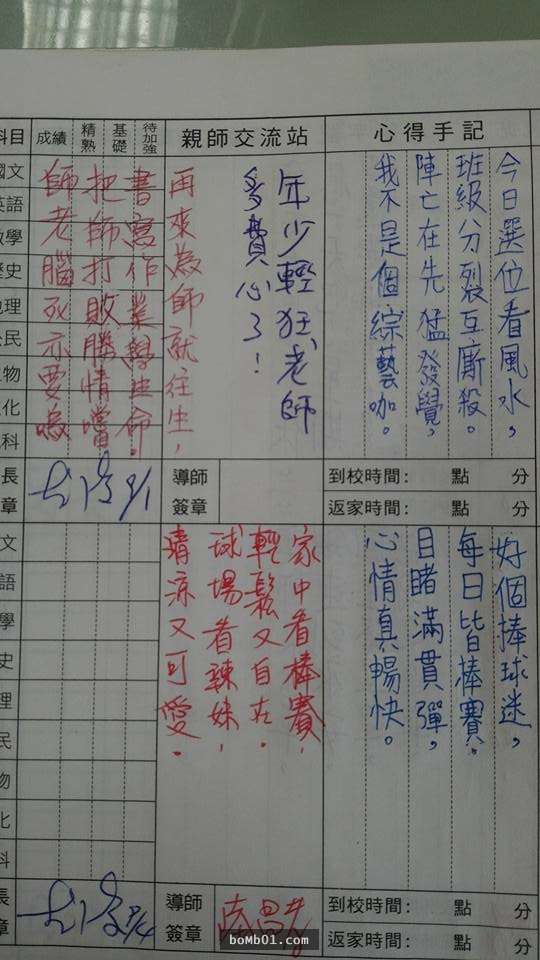 心得手記
今日選位看風水，
班級分裂互廝殺。
陣亡在先猛發覺，
我不是個綜藝咖。
到校時間： 點 分
返家時間： 點 分
親師交流站
年少輕狂，老師
多費心了！
再來為師就往生，
書寫作業學生命。
把師打敗勝情噹
師老腦死亦要嗚
導師
簽章
待加強
基礎
精熟
成績
科目
國文
英語
數學
歷史
地理
公民
生物
理化
地科
長
章
9/1
好個棒球迷，
每日皆棒賽。
目睹滿貫彈，
心情真暢快。
到校時間： 點 分
返家時間： 點 分
家中看棒賽，
輕鬆又自在。
球場看辣妹，
清涼又可愛。
導師
簽章
文
語
學
史
理
民
物
化
科
長
章
boMb01.com